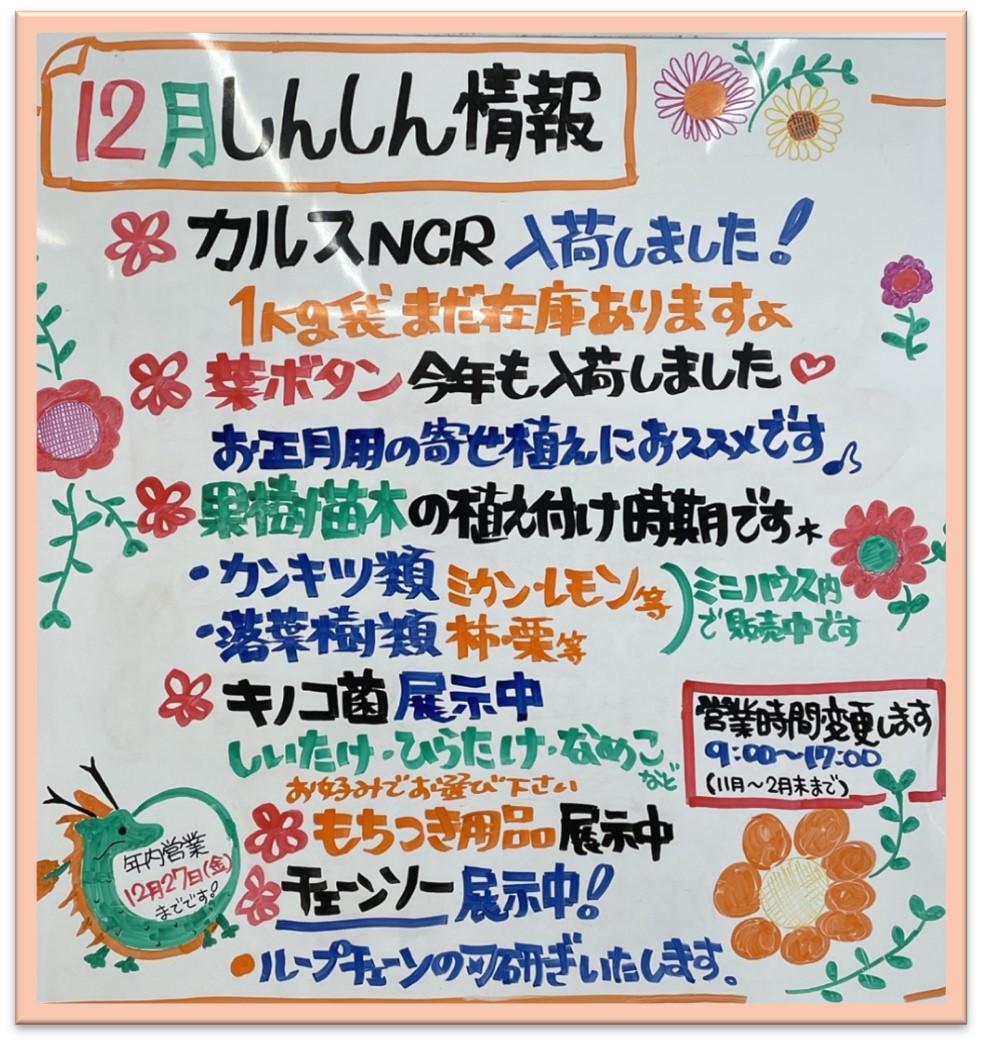 12月しんしん情報
カルスNCR 入荷しました!
1kg袋まだ在庫ありますよ
葉ボタン 今年も入荷しました♡
お正月用の寄せ植えにおススメです♪
果樹苗木の植え付け時期です*
・カンキツ類 ミカン・レモン等
・落葉樹類 柿・栗等
ミニハウス内
で販売中です
キノコ菌 展示中
しいたけ・ひらたけ・なめこなど
お好みでお選び下さい
営業時間変更します
9:00〜17:00
(11月〜2月末まで)
もちつき用品 展示中
チェーンソー 展示中!
・ループチェーンの刃研ぎいたします。
年内営業
12月27日(金)
までです!